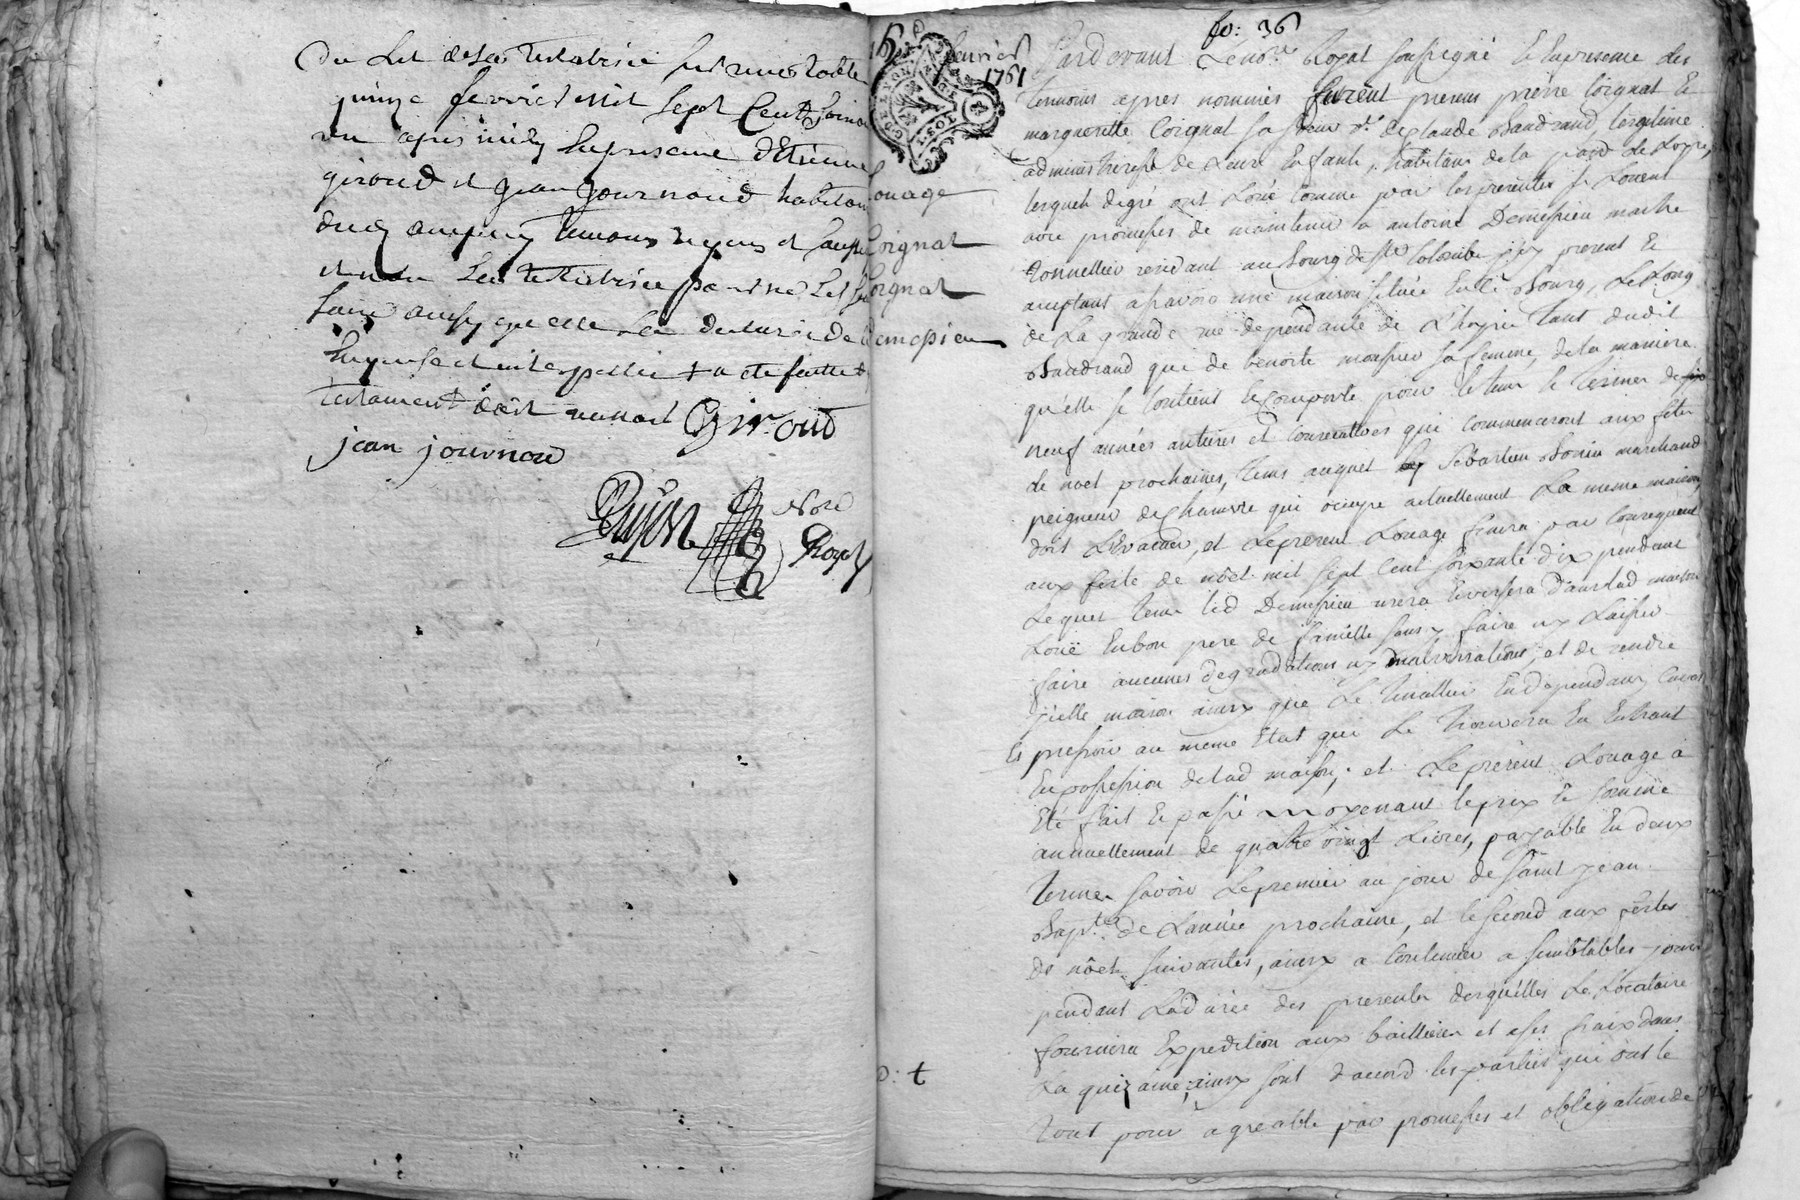 du lit de la testatrice
quinze fevrier mil sept Cent soixan
un apres midy En presence d'Etienne
giroud et jean journoud habitan
temoins requis et
et non la testatrice pour ne
faire ainsy que elle a declaré de
Enquise et interpellée a eté faitte
testament dece nunant Giroud
jean journou
Nore
Royal
15
fevrier
1761
Louage
Coignat
Coignat
Demepieu
fo: 36
Pardevant Le no.re Royal soussigné Et En presence des
temoins apres nommés furent presens pierre Coignat Et
margueritte Coignat sa sœur v.e de Claude Baudrand legitime
administreresse de Leurs Enfants, habitans de la paroisse de Loyre,
lesquels de gré ont Loué comme par les presentes se Louent
avec promesses de maintenir a antoine Demepieu maitre
tonnellier residant au bourg de S.te Colombe icy present Et
aceptant apavoir une maison située En le Bourg, Le Long
de La grande rue dependante de L'hoyrie tant dudit
Baudrand que de benoite monpieu sa femme, de la maniere
qu'elle se Contient Et Comporte pour le tems Et Terme de
neuf années entieres et consecutives qui commenceront aux fetes
de noel prochaines, tems auquel Sebastien Bonin marchand
peigneur de Chanvre qui occupe actuellement La meme maison,
doit L'Evacuer, et Le present Louage finira par Consequent
aux feste de noel mil sept Cent soixante dix pendant
Lequel tems led Demepieu usera Et versera dans lad maison
Loüé En bon pere de famille sans y faire ny Laisser
faire aucunes degradations ny malversations, et de rendre
icelle maison ainsy que Le En dependans Cuves
Et pressoir au meme Etat qui Le trouvera En Entrant
En possession de lad maison, et Le present Louage a
Eté fait Et passé moyenant le prix Et somme
annuellement de quatre vingt Livres, payable En deux
termes savoir Le premier au jour de saint jean
Bapt.te de L'année prochaine, et le second aux festes
de nôel suivantes, ainsy a Continuer a semblables jours
pendant La durée des presentes desquelles Le Locataire
fournira Expedition aux bailliers et a ses fraix dans
La quinzaine, ainsy sont d'accord les parties qui ont le
tout pour agreable par promesses et obligation de